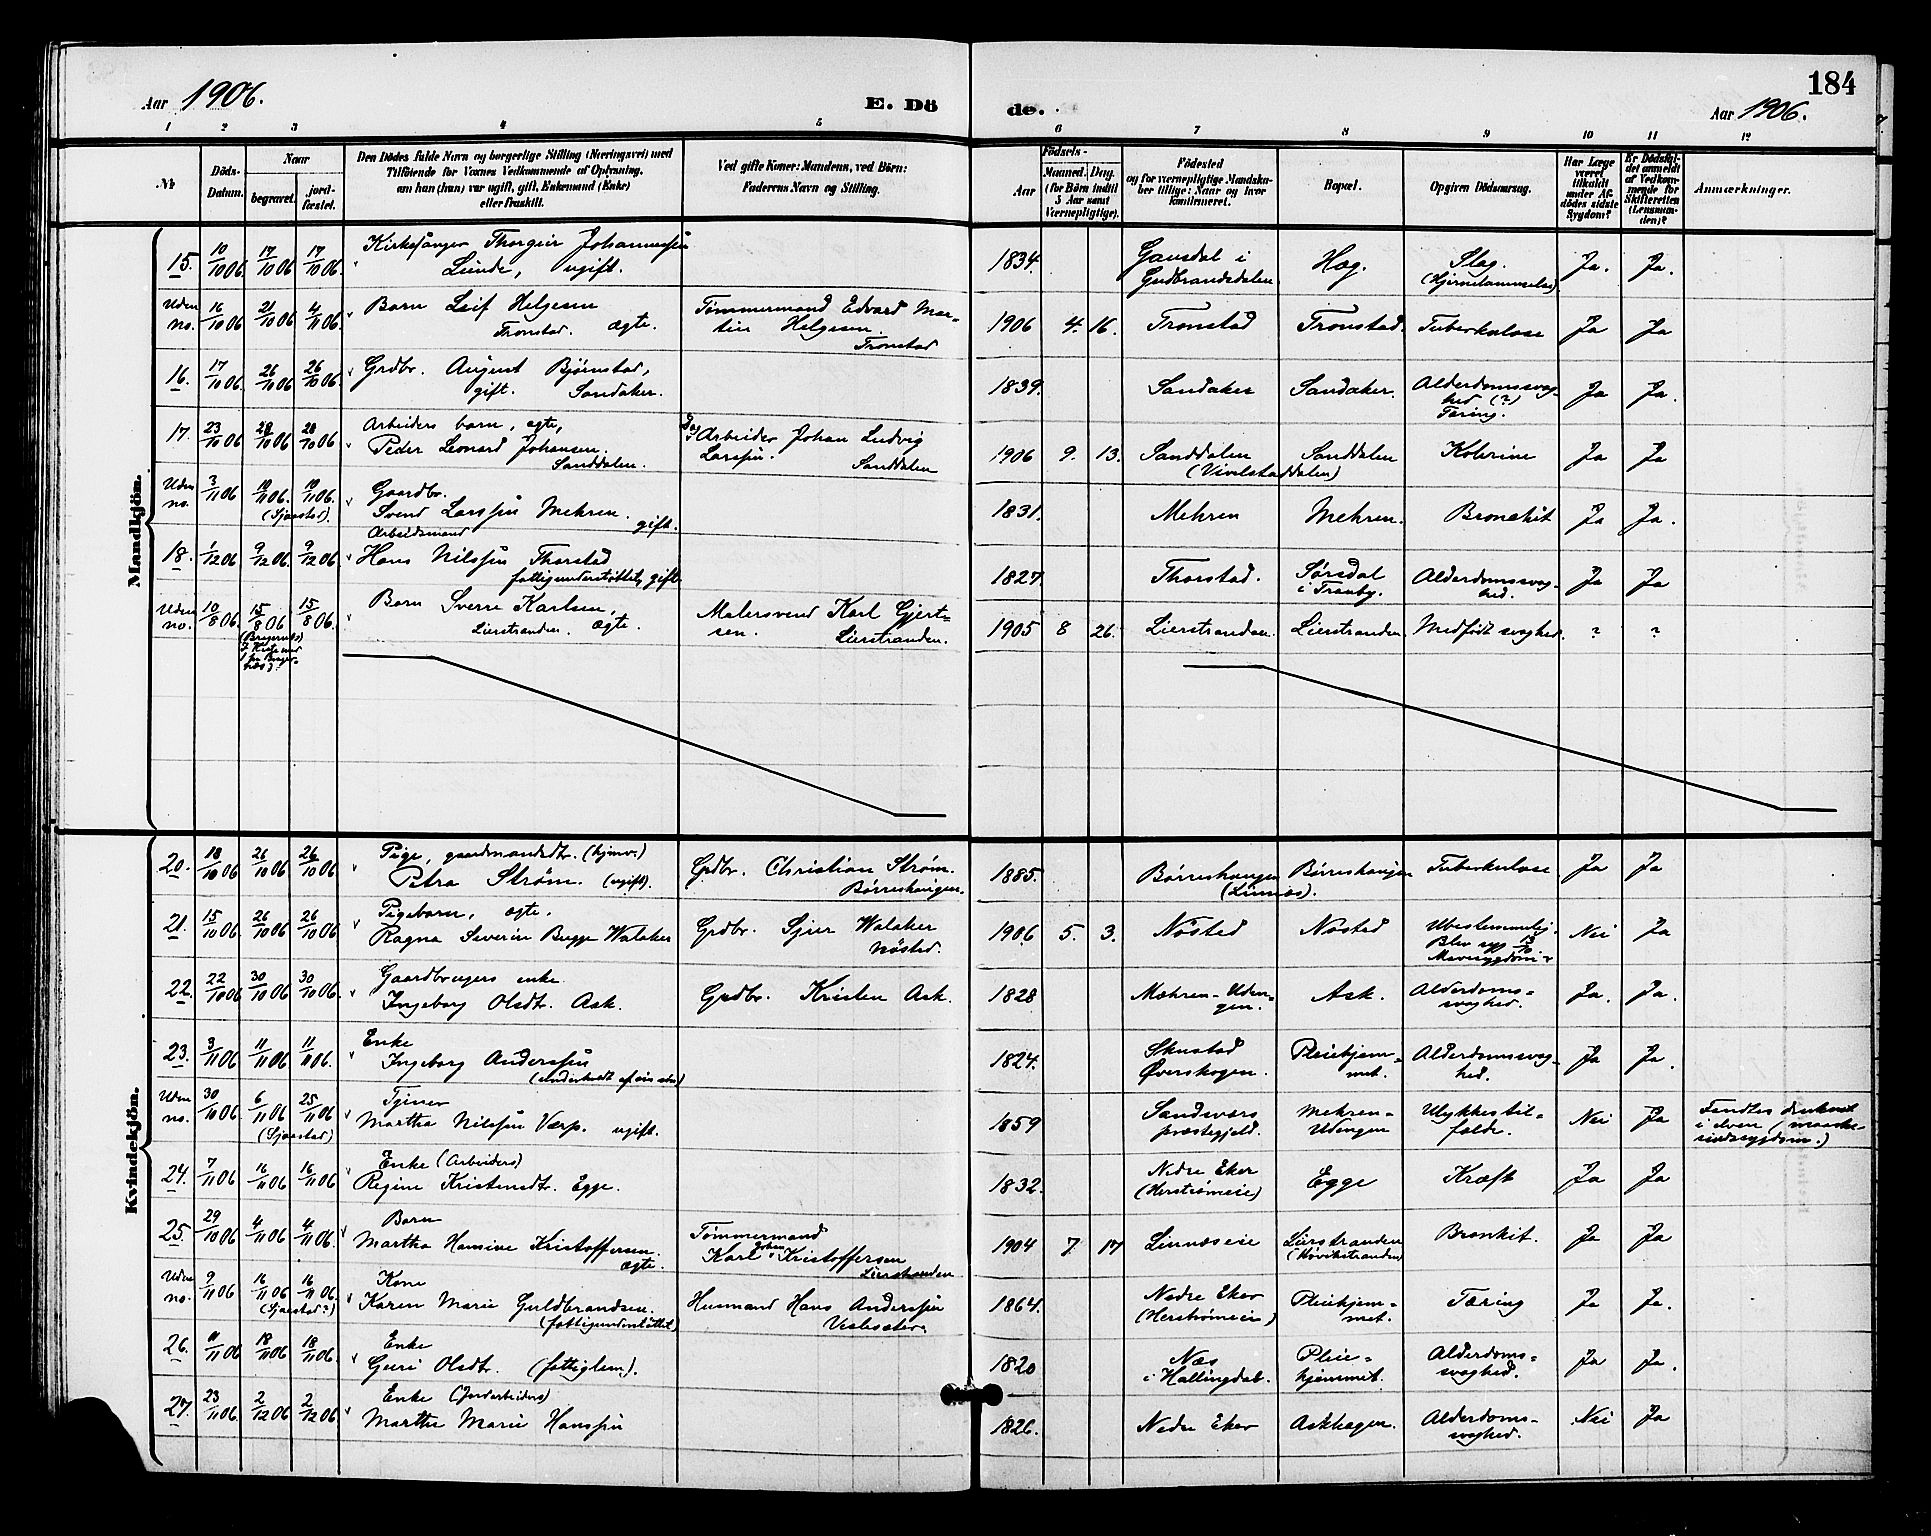 Aar 1906.
E. Dö de.
184
Aar 1906.
1 2 3 4 5 6 7 8 9 10 11 12
№
Döds-Datum.
Naar
begravet.
jord-fæstet.
Den Dödes fulde Navn og borgerlige Stilling (Næringsvei) med
Tilföiende for Voxnes Vedkommende af Oplysning,
om han (hun) var ugift, gift, Enkemand (Enke)
eller fraskilt.
Ved gifte Koner: Mandens, ved Börn:
Faderens Navn og Stilling.
Födsels-
Aar
Maaned. Dag.
(for Börn indtil
5 Aar samt
Værnepligtige).
Födested
og for værnepligtige Mandska-
ber tillige: Naar og hvor
konfirmeret.
Bopæl.
Opgiven Dödsaarsag.
Har Læge
været
tilkaldt
under Af-
dödes sidste
Sygdom?
Er Dödsfal-
det anmeldt
af Vedkom-
mende for
Skifteretten
(Lensman-
den)?
Anmærkninger.
Mandkjön.
15. 10/10 06 17/10 06 17/10 06. Kirkesanger Thorgeir Johannessen
Lunde, ugift.
1834. Gausdal i
Gudbrandsdalen. Hag. Slag.
(Hjernelammelse) Ja. Ja.
Uden
no. 16/10 06 21/10 06 4/11 06. Barn Leif Helgesen
Tronstad. ægte.
Tømmermand Edvard Mar-
tin Helgesen.
Tronstad
1906 4. 16. Tronstad Tronstad. Tuberkulose Ja Ja
16. 17/10 06. 26/10 06 26/10 06. Grdbr. August Bjørnstad,
gift. Sandaker.
1839. Sandaker Sandaker. Alderdomssvag-
hed (?)
Tæring. Ja Ja.
17. 23/10 06 28/10 06 28/10 06 Arbeiders barn, ægte,
Peder Leonard Johansen.
Sanddalen.
Arbeider Johan Ludvig
Larssen. Sanddalen
1906 9. 13. Sanddalen Sanddalen Kolerine Ja Ja
(Vivelstaddalen)
Uden
no. 3/11 06 10/11 06. 10/11 06. Gaardbr.
(Sjaastad). Svend Larssen Mehren. gift.
1831. Mehren Mehren. Bronchit Ja Ja.
18. 1/12 06 9/12 06. 9/12 06 Arbeidsmand
Hans Nilssen Thorstad
fattigunderstøttet, gift.
1827. Thorstad. Sørsdal
i Tranby. Alderdomssvag-
hed. Ja Ja
Uden
no. 10/8 06 15/8 06 15/8 06. Barn Sverre Karlsen,
Lierstranden. ægte.
(Bragernes)
Malersvend Karl Gjert-
sen. Lierstranden.
1905 8 26. Lierstranden. Lierstranden. Medfødt svaghed. ? ?
Kvindekjön.
20. 18/10 06 26/10 06 26/10 06 Pige, gaardmandsdtr. (hjemv.)
Petra Strøm. (ugift).
Grdbr. Christian Strøm.
Børreshaugen.
1885. Børreshaugen Børreshaugen Tuberkulose. Ja Ja
(Linnæs).
21. 15/10 06. 26/10 06 26/10 06 Pigebarn, ægte.
Ragna Severine Bugge Walaker
Grdbr. Sjur Walaker
Nøsted.
1906 5. 3. Nøsted Nøsted Ubestemmelig.
Blev syg 13/10.
Mavesygdom? Nei Ja
22. 22/10 06 30/10 06 30/10 06. Gaardbrugers enke
Ingeborg Olsdt. Ask.
Grdbr. Kristen Ask.
1828 Mehren-Uden-
gen. Ask. Alderdoms-
svaghed. Ja. Ja.
23. 3/11 06 11/11 06 11/11 06. Enke
Ingeborg Anderssen
1824. Skustad
Øverskogen. Pleiehjem-
met. Alderdomssvag-
hed. Ja Ja.
Uden
no. 30/10 06 6/11 06 25/11 06 Tjener
(Sjaastad) Martha Nilssen Værp. ugift.
1859 Sandsværs
præstegjeld. Mehren-
Udengen Ulykkestil-
fælde. Nei Ja Fandtes druknet
i elven (maaske
sindssygdom.)
24. 7/11 06 16/11 06 16/11 06 Enke (Arbeiders)
Regine Kristensdt. Egge.
1832. Nedre Eker
(Herstrømeie) Egge Kræft Ja Ja
25. 29/10 06 4/11 06 4/11 06 Barn
Martha Hansine Kristoffersen.
ægte.
Tømmermand
Karl Johan Kristoffersen
Lierstranden
1904 7 17 Linnæseie Lierstranden
(Høvikstranden) Bronkit. Ja Ja
Uden
no. 9/11 06 16/11 06 16/11 06. Kone
(Sjaastad?) Karen Marie Guldbrandsen.
(fattigunderstøttet)
Husmand Hans Anderssen
1864. Nedre Eker
(Herstrømeie) Pleiehjem-
met. Tæring Ja Ja.
26. 11/11 06 18/11 06 18/11 06. Enke
Guri Olsdt. (fattiglem).
1820 Næs
i Hallingdal. Pleie-
hjemmet. Alderdoms-
svaghed. Ja Ja.
27. 23/11 06. 2/12 06 2/12 06 Enke (Jordarbeiders)
Marthe Marie Hanssen
1826. Nedre Eker Askhagen. Alderdoms-
svaghed. Nei Ja